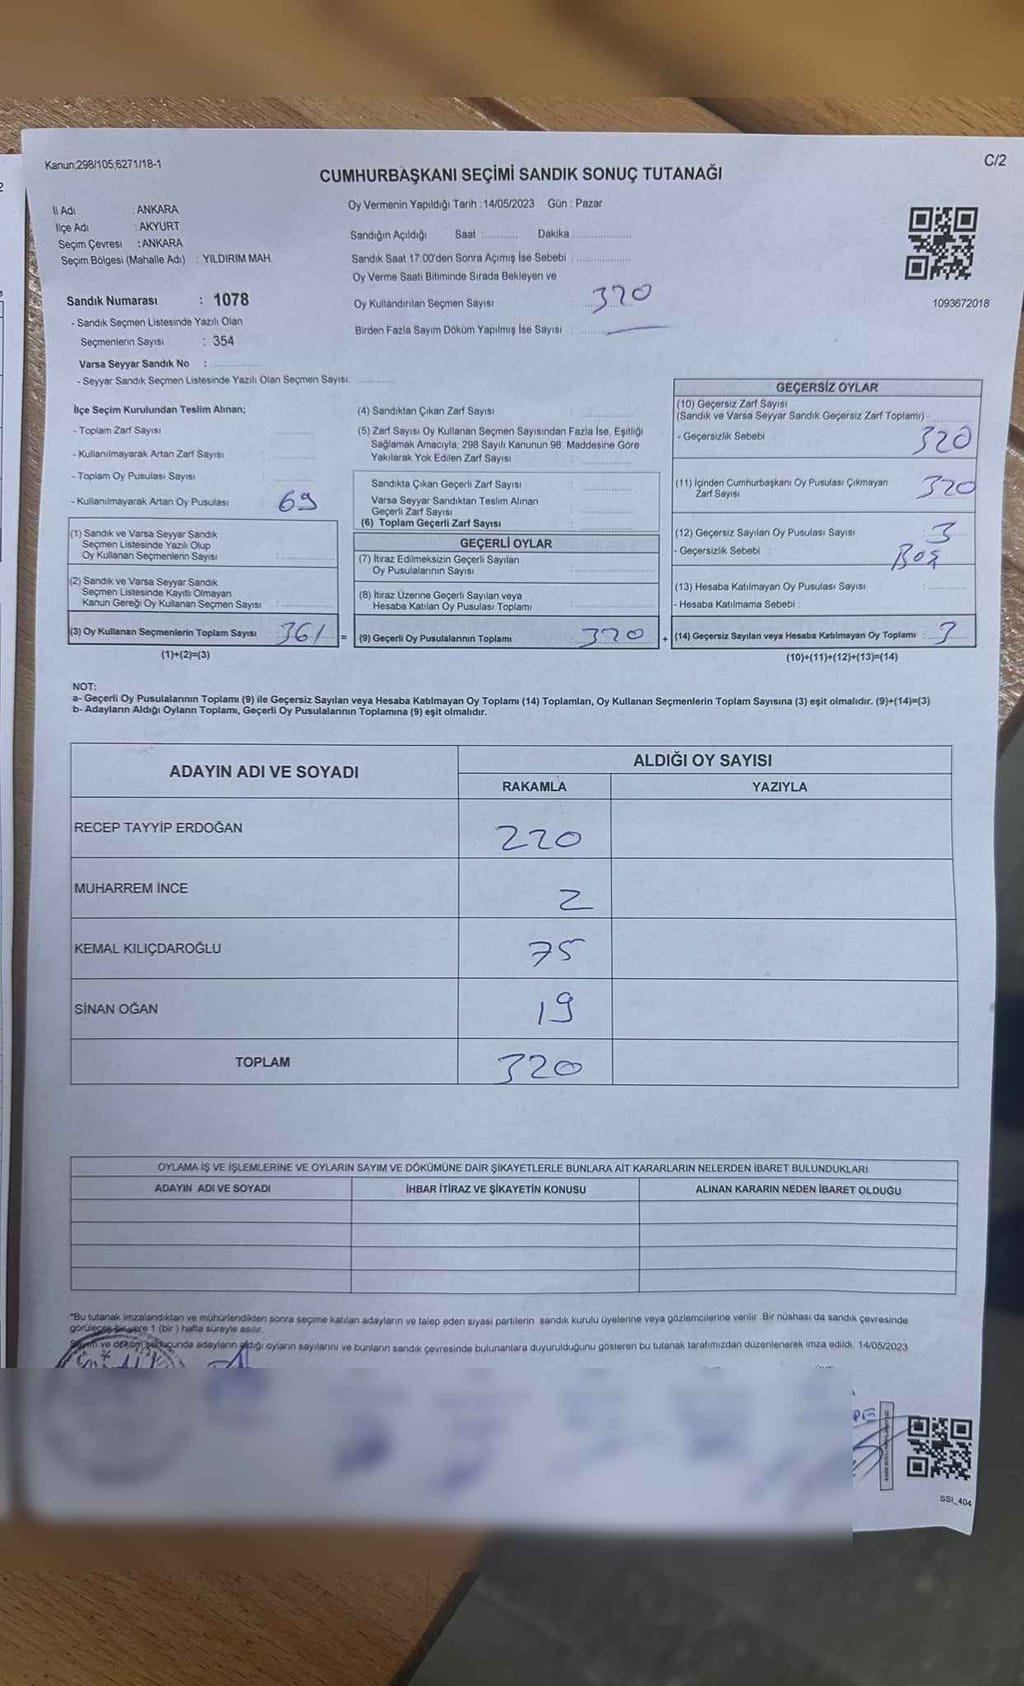 Kanun;298/105;6271/18-1
C/2
CUMHURBAŞKANI SEÇİMİ SANDIK SONUÇ TUTANAĞI
İl Adı : ANKARA
İlçe Adı : AKYURT
Seçim Çevresi : ANKARA
Seçim Bölgesi (Mahalle Adı) : YILDIRIM MAH.
Sandık Numarası : 1078
- Sandık Seçmen Listesinde Yazılı Olan
Seçmenlerin Sayısı : 354
Varsa Seyyar Sandık No :
- Seyyar Sandık Seçmen Listesinde Yazılı Olan Seçmen Sayısı:
Oy Vermenin Yapıldığı Tarih : 14/05/2023 Gün : Pazar
Sandığın Açıldığı Saat :.......... Dakika :..............
Sandık Saat 17:00'den Sonra Açımış İse Sebebi :..............
Oy Verme Saati Bitiminde Sırada Bekleyen ve
Oy Kullandırılan Seçmen Sayısı 320
Birden Fazla Sayım Döküm Yapılmış İse Sayısı :
1093672018
İlçe Seçim Kurulundan Teslim Alınan;
- Toplam Zarf Sayısı :
- Kullanılmayarak Artan Zarf Sayısı :
- Toplam Oy Pusulası Sayısı :
- Kullanılmayarak Artan Oy Pusulası : 69
(1) Sandık ve Varsa Seyyar Sandık
Seçmen Listesinde Yazılı Olup
Oy Kullanan Seçmenlerin Sayısı :
(2) Sandık ve Varsa Seyyar Sandık
Seçmen Listesinde Kayıtlı Olmayan
Kanun Gereği Oy Kullanan Seçmen Sayısı :
(3) Oy Kullanan Seçmenlerin Toplam Sayısı : 361 =
(1)+(2)=(3)
(4) Sandıktan Çıkan Zarf Sayısı :
(5) Zarf Sayısı Oy Kullanan Seçmen Sayısından Fazla İse, Eşitliği
Sağlamak Amacıyla; 298 Sayılı Kanunun 98. Maddesine Göre
Yakılarak Yok Edilen Zarf Sayısı :
Sandıkta Çıkan Geçerli Zarf Sayısı :
Varsa Seyyar Sandıktan Teslim Alınan
Geçerli Zarf Sayısı :
(6) Toplam Geçerli Zarf Sayısı :
GEÇERLİ OYLAR
(7) İtiraz Edilmeksizin Geçerli Sayılan
Oy Pusulalarının Sayısı :
(8) İtiraz Üzerine Geçerli Sayılan veya
Hesaba Katılan Oy Pusulası Toplamı :
(9) Geçerli Oy Pusulalarının Toplamı : 320 +
GEÇERSİZ OYLAR
(10) Geçersiz Zarf Sayısı
(Sandık ve Varsa Seyyar Sandık Geçersiz Zarf Toplamı) :
- Geçersizlik Sebebi : 320
(11) İçinden Cumhurbaşkanı Oy Pusulası Çıkmayan
Zarf Sayısı 320
(12) Geçersiz Sayılan Oy Pusulası Sayısı : 3
- Geçersizlik Sebebi : Boş
(13) Hesaba Katılmayan Oy Pusulası Sayısı :
- Hesaba Katılmama Sebebi :
(14) Geçersiz Sayılan veya Hesaba Katılmayan Oy Toplamı : 3
(10)+(11)+(12)+(13)=(14)
NOT:
a- Geçerli Oy Pusulalarının Toplamı (9) ile Geçersiz Sayılan veya Hesaba Katılmayan Oy Toplamı (14) Toplamları, Oy Kullanan Seçmenlerin Toplam Sayısına (3) eşit olmalıdır. (9)+(14)=(3)
b- Adayların Aldığı Oyların Toplamı, Geçerli Oy Pusulalarının Toplamına (9) eşit olmalıdır.
ADAYIN ADI VE SOYADI
ALDIĞI OY SAYISI
RAKAMLA YAZIYLA
RECEP TAYYİP ERDOĞAN 220
MUHARREM İNCE 2
KEMAL KILIÇDAROĞLU 75
SİNAN OĞAN 19
TOPLAM 320
OYLAMA İŞ VE İŞLEMLERİNE VE OYLARIN SAYIM VE DÖKÜMÜNE DAİR ŞİKAYETLERLE BUNLARA AİT KARARLARIN NELERDEN İBARET BULUNDUKLARI
ADAYIN ADI VE SOYADI İHBAR İTİRAZ VE ŞİKAYETİN KONUSU ALINAN KARARIN NEDEN İBARET OLDUĞU
*Bu tutanak imzalandıktan ve mühürlendikten sonra seçime katılan adayların ve talep eden siyasi partilerin sandık kurulu üyelerine veya gözlemcilerine verilir. Bir nüshası da sandık çevresinde
görülecek bir yere 1 (bir ) hafta süreyle asılır.
Sayım ve döküm sonucunda adayların aldığı oyların sayılarını ve bunların sandık çevresinde bulunanlara duyurulduğunu gösteren bu tutanak tarafımızdan düzenlenerek imza edildi. 14/05/2023
SSI_404